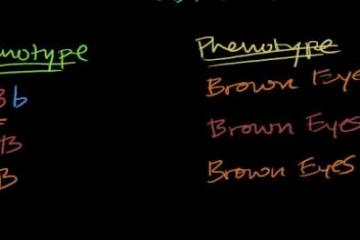 notype Phenotype
Bb Brown Eye
B Brown Eyes
B Brown Eyes